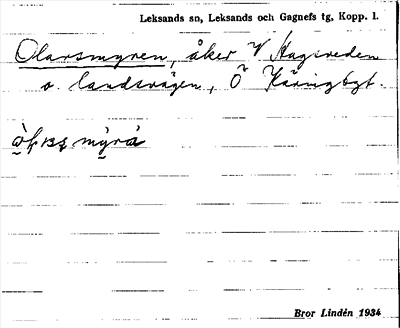 Leksands sn, Leksands och Gagnefs tg, Kopp. l.
Olarsmyren, åker V Hagsveden
o landsvägen, Ö
Bror Lindén 1934